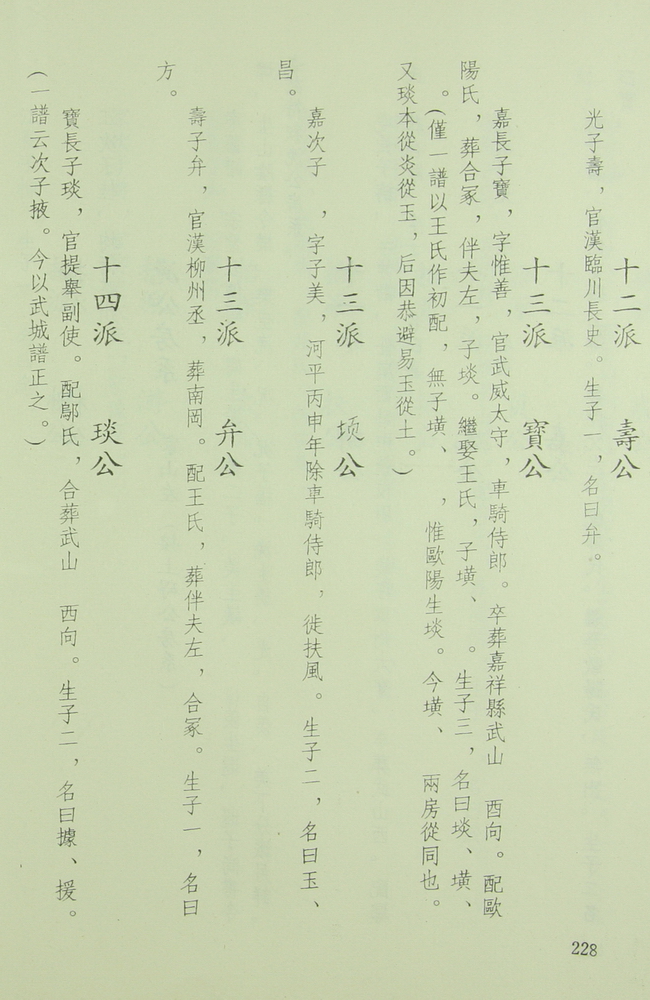 十二派　壽公
光子壽，官漢臨川長史。生子一，名曰弁。
十三派　寶公
嘉長子寶，字惟善，官武威太守，車騎侍郎。卒葬嘉祥縣武山　酉向。配歐
陽氏，葬合冢，伴夫左，子埮。繼娶王氏，子墴、　。生子三，名曰埮、墴、
　。(僅一譜以王氏作初配，無子墴、　，惟歐陽生埮。今墴、　兩房從同也。
又琰本從炎從玉，后因恭避易玉從土。)
十三派　頊公
嘉次子　，字子美，河平丙申年除車騎侍郎，徙扶風。生子二，名曰玉、
昌。
十三派　弁公
壽子弁，官漢柳州丞，葬南岡。配王氏，葬伴夫左，合冢。生子一，名曰
方。
十四派　琰公
寶長子琰，官提舉副使。配鄔氏，合葬武山　西向。生子二，名曰據、援。
(一譜云次子掖。今以武城譜正之。)
228